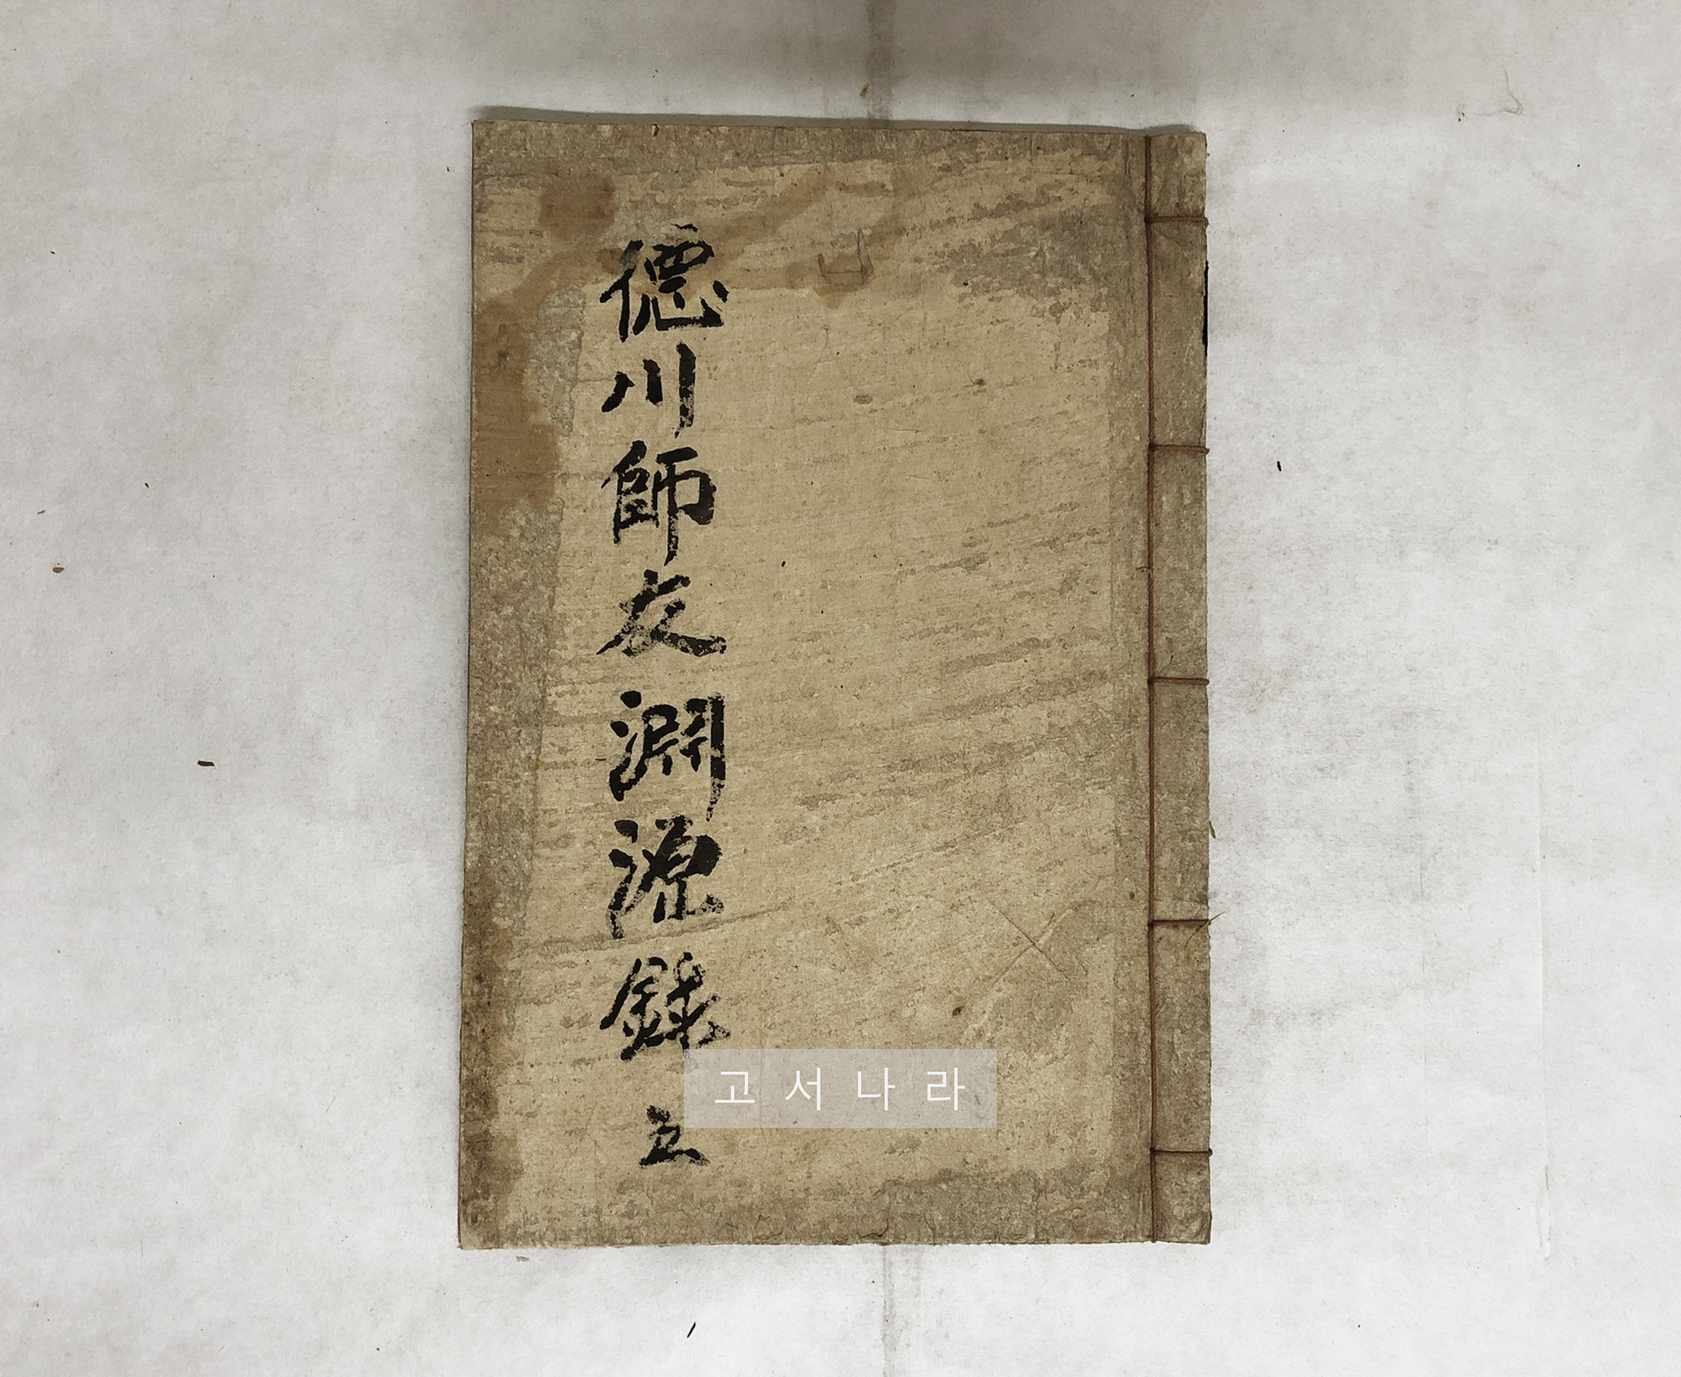 德川師友淵源錄
五
고서나라